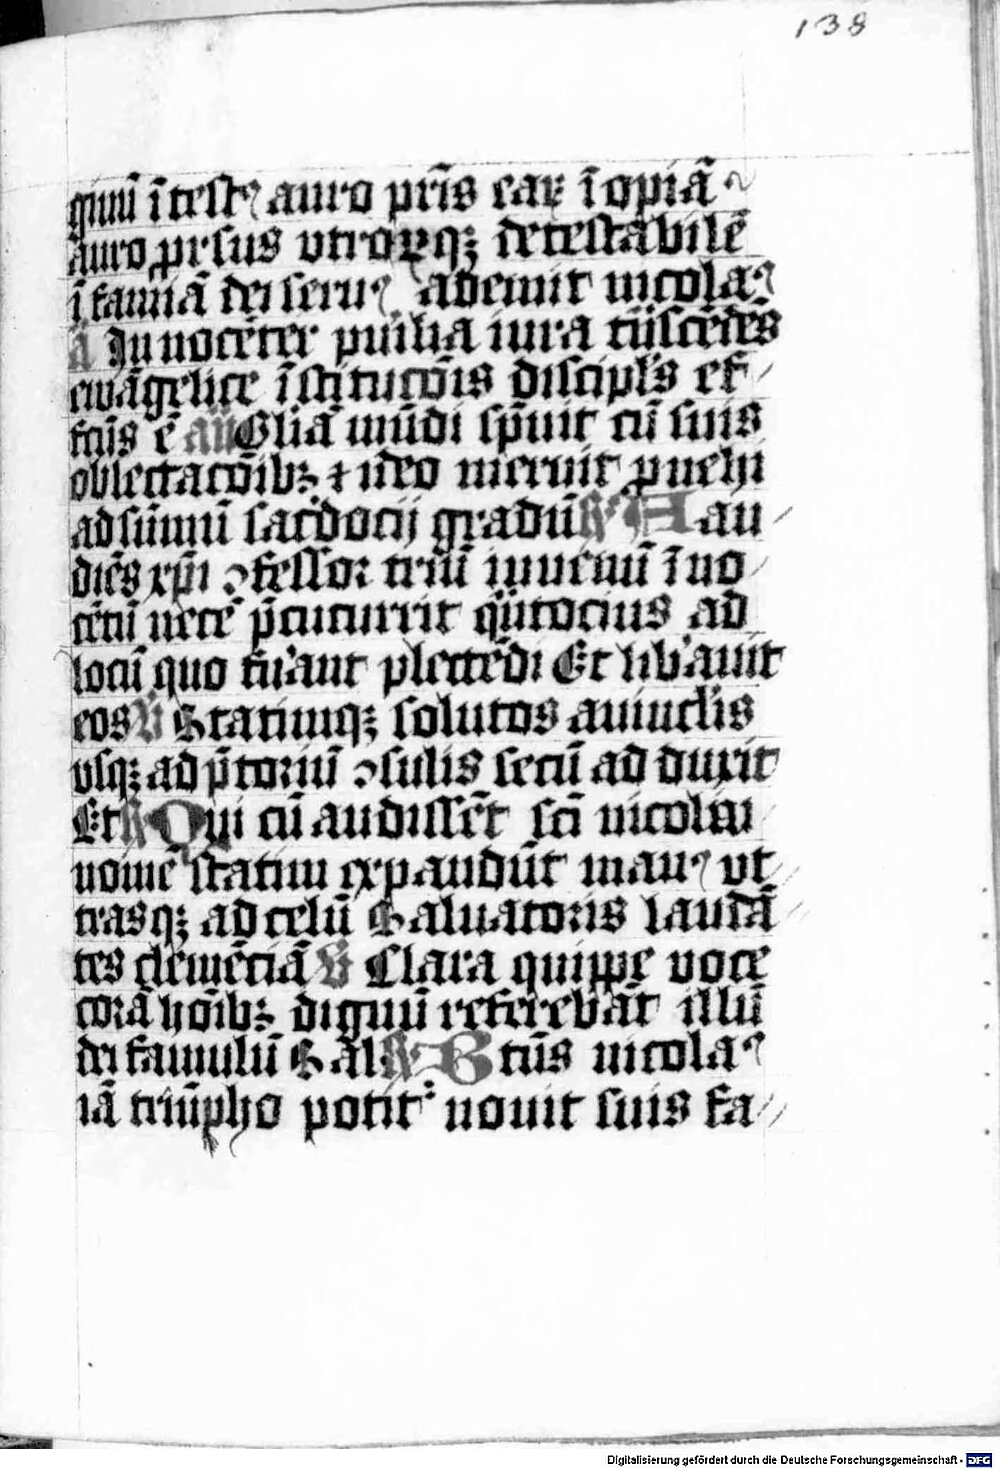 138
ginū ī testꝰ auro pr̄is eaꝝ ī opiā
auro ꝓrsus utroꝝqꝫ detestabilē
ī famiā dei seruꝰ ademit nicolaꝰ
ā Innocēter puilia iura trāscēdēs
ewāgelice īstitucōis discipl's ef
fcūs ē añ Gliā mūdi sp̄uit cū suis
oblectacōibꝫ ⁊ ideo meruit ꝓuehi
ad sūmū sac̄docij gradū ℟ Au
diēs xp̄i ꝯfessor triū iuuenū īno
cētū necē p̄cucurrit q̄ntocius ad
locū quo fu'ant plectēdi Et lib'auit
eos ℣ Statimqꝫ solutos a uincl'is
usqꝫ ad p̄toriū ꝯsulis secū adduxit
Et ℟ Qui cū audissēt sc̄i nicolai
nomē statim expandūt manꝰ ut
rasqꝫ ad celū Saluatoris laudā
tes clemēciā ℣ Clara quippe uoce
corā hōibꝫ dignū referebāt illū
dei famulū Sal ℟ Btūs nicolaꝰ
iā triūpho potitꝰ nouit suis fa
Digitalisierung gefördert durch die Deutsche Forschungsgemeinschaft - DFG